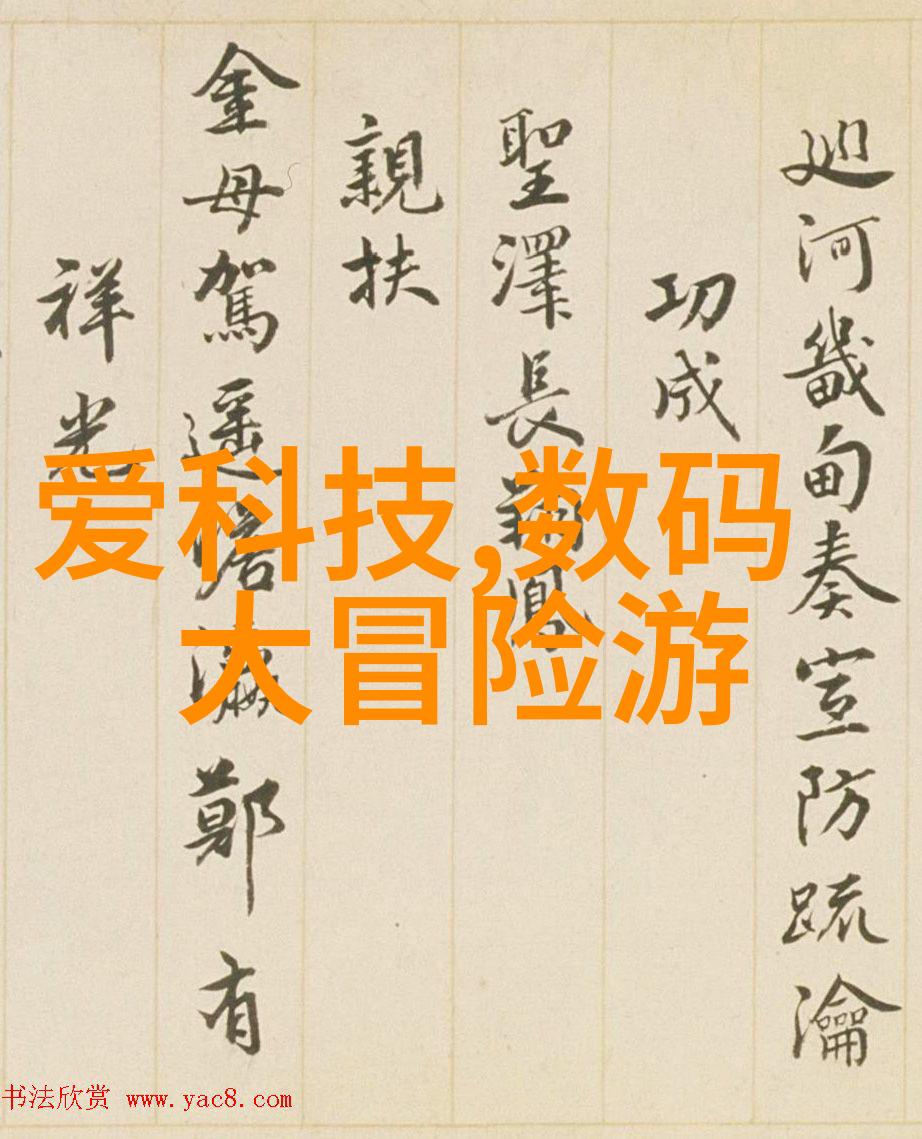 廵河畿甸奏宣防疏瀹
功成
聖澤長翔鳳
親扶
金母駕遥瞻瀛鄭有
祥光
爱科技,数码
大冒险游
书法欣赏 www.yac8.com